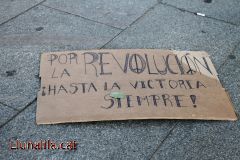 POR REVOLUCIÓN
LA
¡HASTA LA VICTORIA
SIEMPRE!
Llunàtia.cat